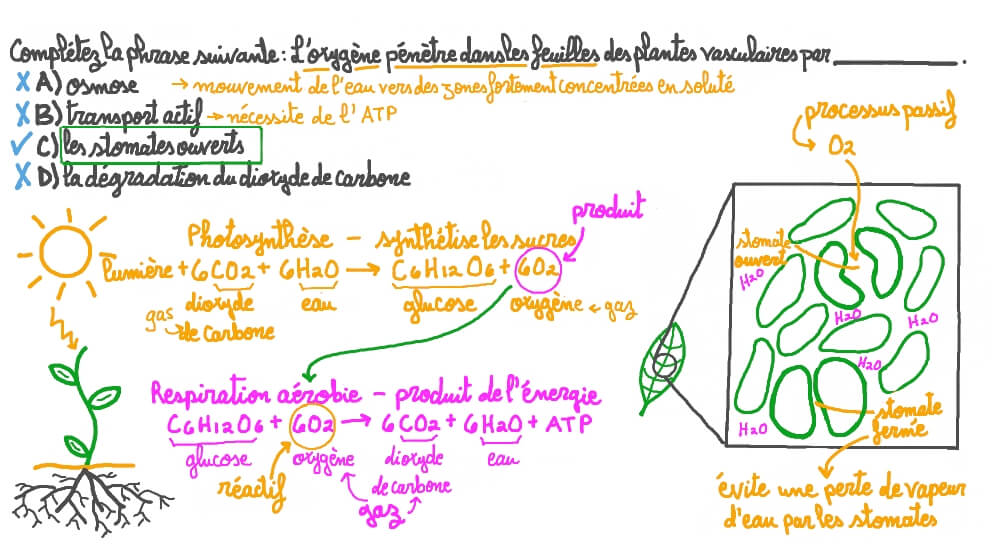 Complétez la phrase suivante : L'oxygène pénètre dans les feuilles des plantes vasculaires par __________.
A) osmose → mouvement de l'eau vers des zones fortement concentrées en soluté
B) transport actif → nécessite de l'ATP
C) les stomates ouverts
D) la dégradation du dioxyde de carbone
processus passif
O2
produit
Photosynthèse – synthétise les sucres
lumière + 6CO2 + 6H2O → C6H12O6 + 6O2
dioxyde eau glucose oxygène ← gaz
gas → de carbone
Respiration aérobie – produit de l'énergie
C6H12O6 + 6O2 → 6CO2 + 6H2O + ATP
glucose oxygène dioxyde eau
réactif de carbone
gaz
stomate
ouvert
H2O
H2O
H2O
H2O
H2O
stomate
fermé
évite une perte de vapeur
d'eau par les stomates